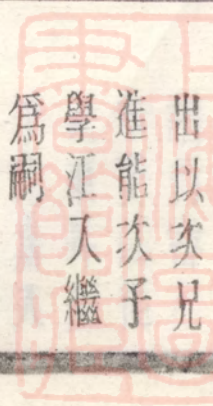 出以次兄
進能次子
學江入繼
爲嗣